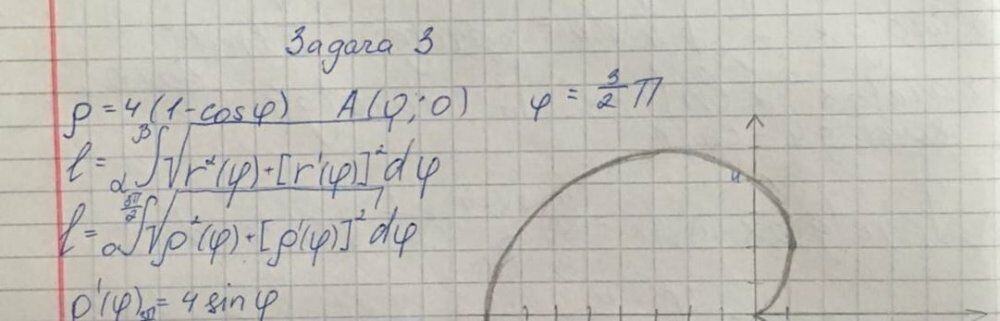 Задача 3
ρ = 4(1-cosφ) A(0;0) φ = 3/2 π
l = α∫β √r²(φ)+[r'(φ)]² dφ
l = 0∫3π/2 √ρ²(φ)+[ρ'(φ)]² dφ
4
ρ'(φ) = 4 sin φ